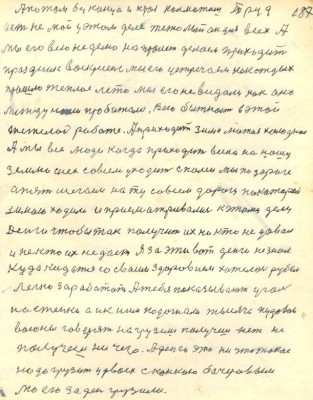 А потом бу конца и края
Труд
187
нет не мой у этом деле
всех А
мы его всю неделю на
делаем приходит
праздник воскресенье мы его устречаем как отдых
прошло теплое лето мы его не видали как оно
между нами пробигало. Всю бытность в этой
тяжелой работе. А приходит зима матка холодная
А мы все люди когда приходит вина на нашу
землю снех совсем уходит с поля мы по дороге
опят шегаем на ту совсем дорогу по которой
зимою ходили и присматривали к этому делу
Денги чтобы так получит их никто не давал
и некто их не дает Я за эти вот денги не знал
куда кидатся со своим здоровием хотел и рубел
легко заработат А тебя показывают угол
на стенки а к ним подогнали тысяча пудовые
вагоны говорят нагрузим получим нет не
получаем ни чего. А ден ж это на што такое
надо грузит у двоех с
мы его за ден грузили.